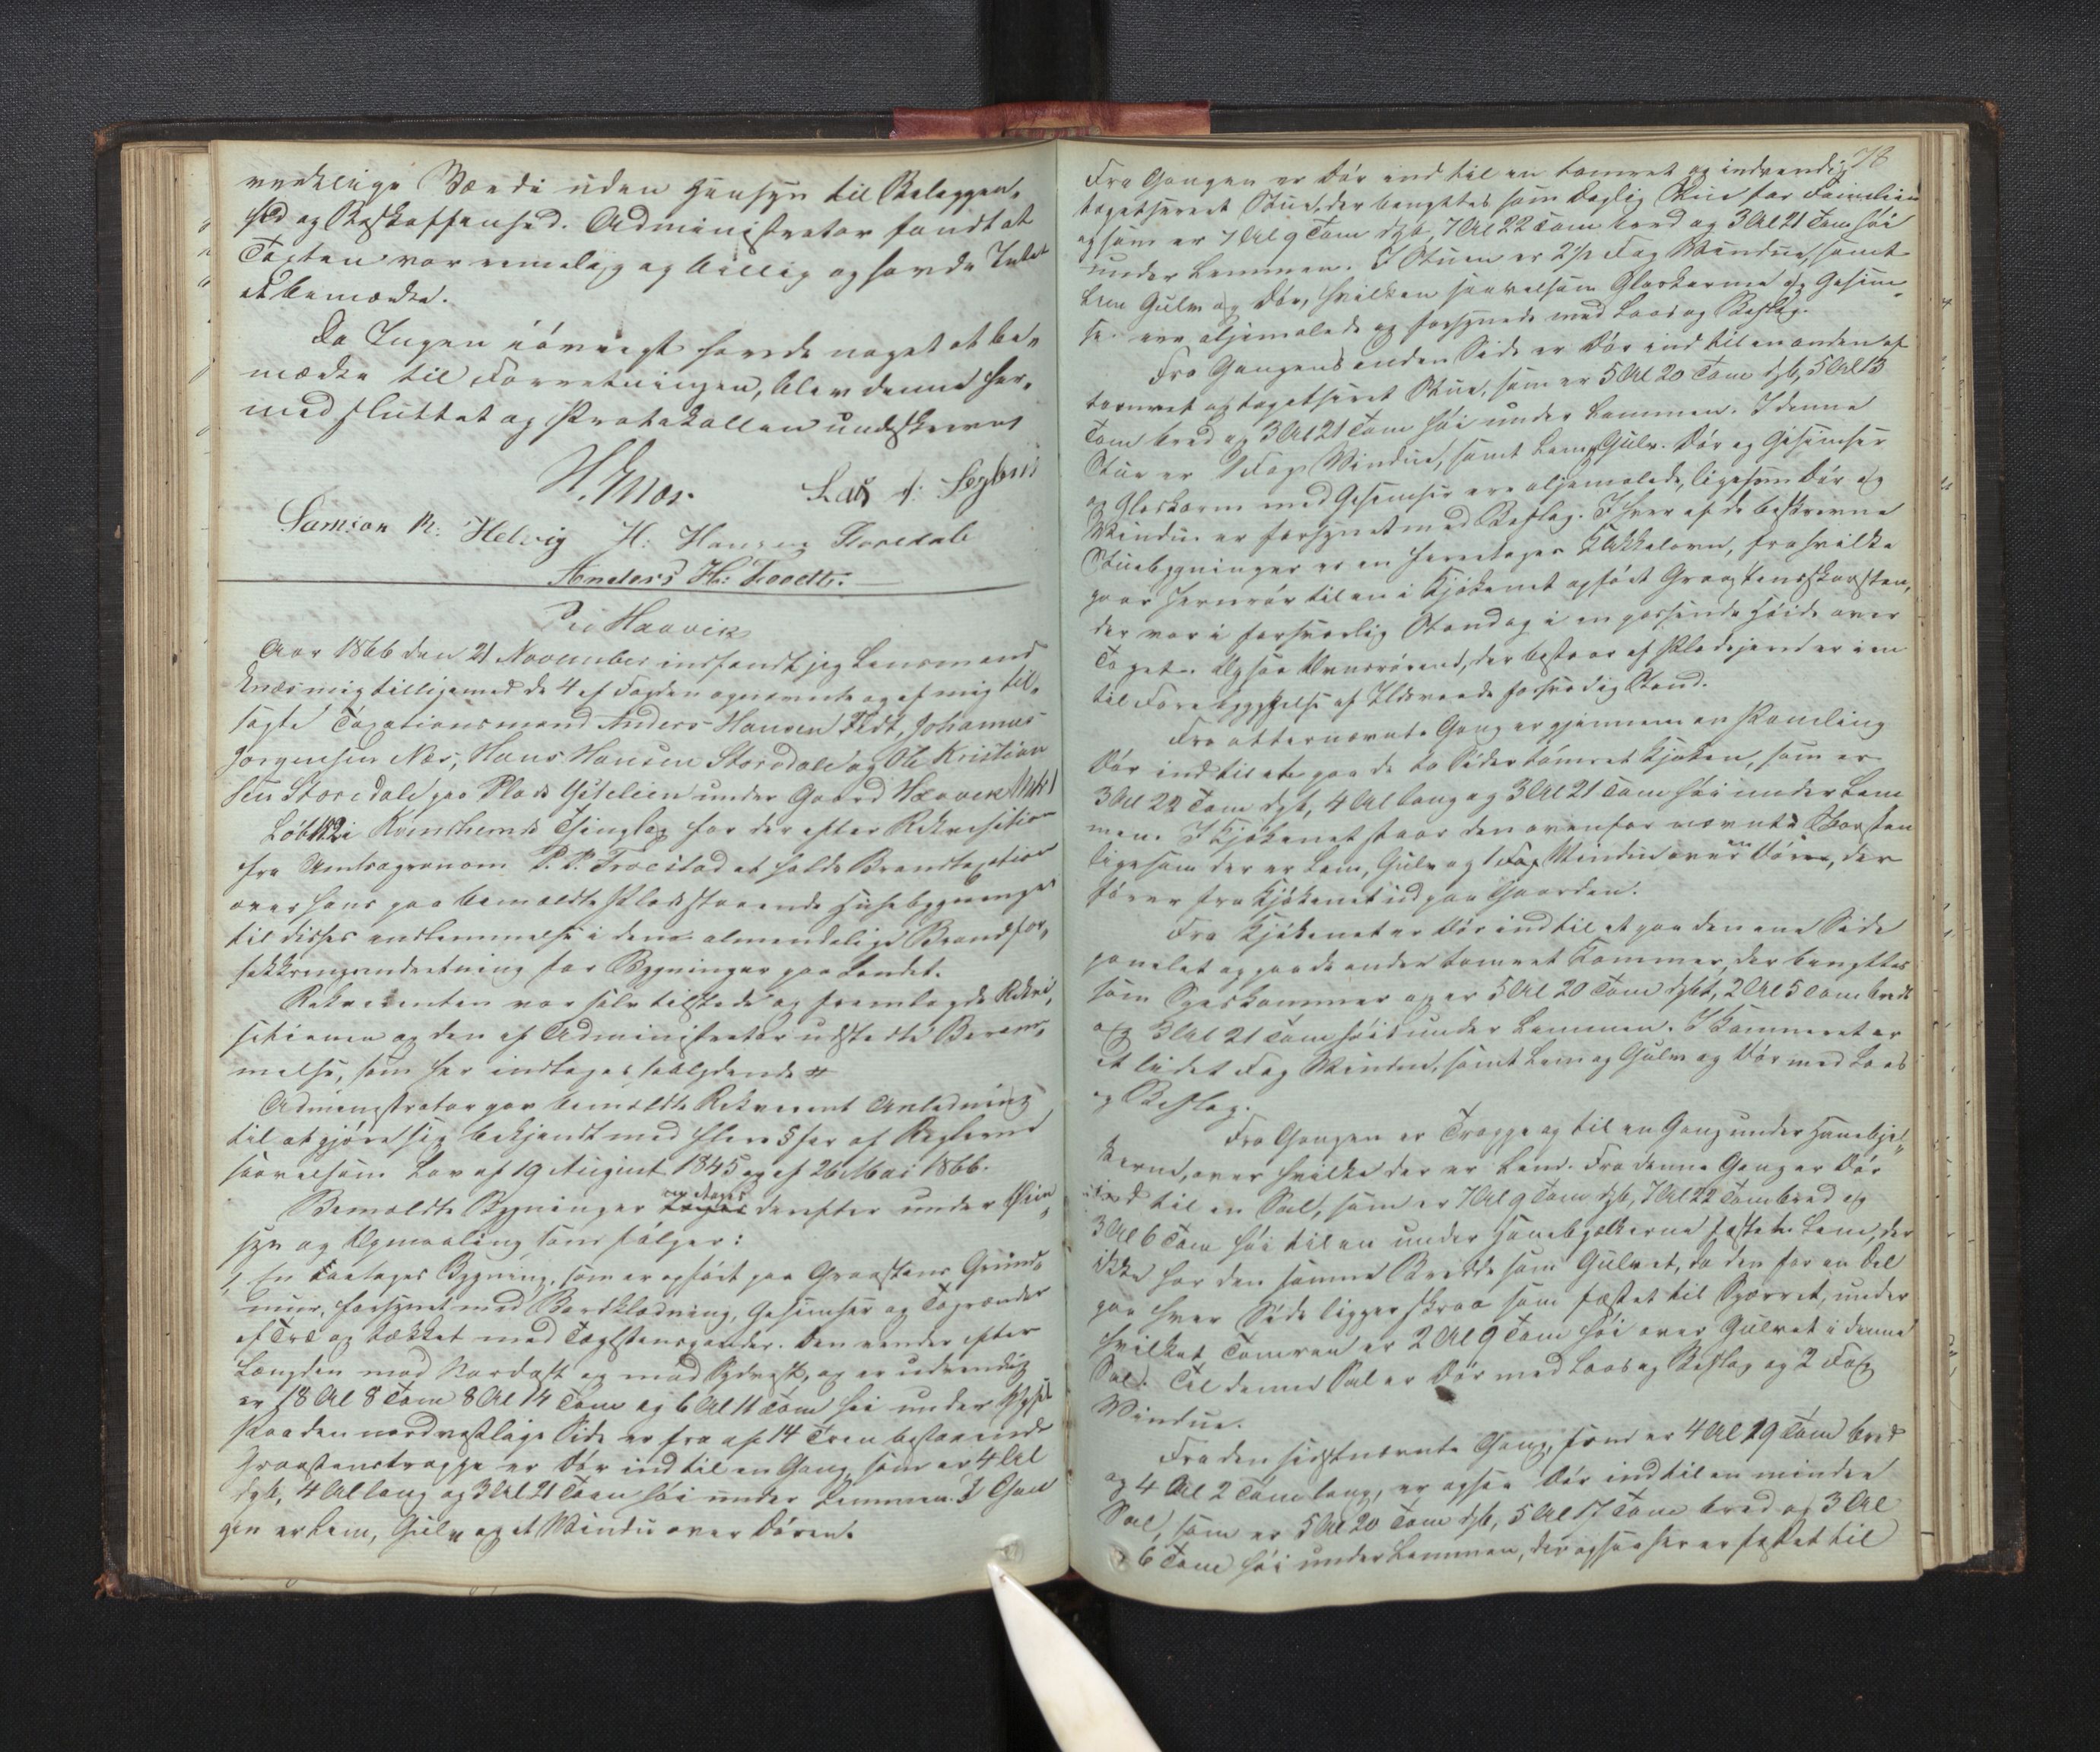 virkelige Værdi uden Hensyn til Beliggen-
hed og Beskaffenhed. Administrator fandt at
Taxten var rimelig og billig og havde Intet
at bemærke.
Da Ingen iøvrigt havde noget at be-
mærke til Forretningen, blev denne her-
med sluttet og Protokollen underskrevet
H. Mos. Lars
Samson M: Helvig H: Hansen Storedale
Anders H: Tvedt.
Paa Haavik
Aar 1866 den 21 November indfandt jeg Lensmand
mig tilligemed de 4 af Fogden opnævnte og af mig til-
sagte Taxationsmænd Anders Hansen Tvedt, Johannes
Jørgensen Næs, Hans Hansen Storedale og Ole Kristian
sen Storedale paa Plads under Gaard Haavik
Løb № 2 i Kvindherreds Thinglag for der efter Rekvisition
fra Amtsagronom P. P. Froestad at holde Brandtaxation
over hans paa bemældte Plads staaende Husebygninger
til disses indlemmelse i den almindelige Brandfor-
sikkringsindretning for Bygninger paa Landet.
Rekvirenten var selv tilstede og fremlagde Rekvi-
sitionen og den af Administrator udstedte Beram-
melse, som her indtages saalydende #
Administrator gav bemældte Rekvirent Anledning
til at gjøre sig bekjendt med flere §fer af Reglerne
saavelsom Lov af 19 August 1845 og af 26 Mai 1866.
Bemældte Bygninger toges derefter under Øien-
syn og Opmaaling som følger:
1, En toetages Bygning, som er opført paa Graastens Grund-
muur, forsynet med Bordklædning, Gesimser og Tagrender
af Træ og tækket med Taglstenspander. Den vender efter
Længden mod Nordost og mod Sydvest, og er udvendig
er 18 Al 8 Tom 8 Al 14 Tom og 6 Al 11 Tom høi under
Paa den nordvestlige Side er fra af 14 Trin bestaaende
Graastenstrappe er Dør ind til en Gang, som er 4 Al
dyb, 4 Al lang og 3 Al 21 Tom høi under Lemmen. I Gan
gen er Lem, Gulv og et Vindu over Døren.
78
Fra Gangen er Dør ind til en tømret og indvendig
tapetseret Stue, der benyttes som daglig Stue for Familien
og som er 7 Al 9 Tom dyb, 7 Al 22 Tom bred og 3 Al 21 Tom høi
under Lemmen. I Stuen er 2½ Fag Vinduer, samt
Lem Gulv og Dør, hvilken saavelsom Glaskarme og Gesim-
se ere oljemalede og forsynede med Laas og Beslag.
Fra Gangens anden Side er Dør ind til en anden af
tømret og tapetseret Stue, som er 5 Al 20 Tom dyb, 5 Al 13
Tom bred og 3 Al 21 Tom høi under Lemmen. I denne
Stue er 2 Fag Vinduer, samt Lem, Gulv. Dør og Gesimser
og Glaskarm med Gesimser ere oljemalede, ligesom Dør og
Vindu er forsynet med Beslag. I hver af de beskrevne
Stuebygninger er en heretages Kakkelovn, fra hvilke
gaar Jernrør til en i Kjøkenet opført Graastensskorsten,
der var i forsvarlig Stand og i en passende Høide over
Taget. Ogsaa Ovnsrørene, der bestaar af Pladejern er i en
til Forebyggelse af Ildsvaade forsvarlig Stand.
Fra otternævnte Gang er gjennem en Paneling
Dør ind til et paa de to Sider tømret Kjøken, som er
3 Al 22 Tom dyb, 4 Al lang og 3 Al 21 Tom høi under Lem
men. I Kjøkenet staar den ovenfor nævnte Skorsten
ligesom der er Lem, Gulv og 1 Fag Vindue over en Dør, der
fører fra Kjøkenet ud paa Gaarden.
Fra Kjøkenet er Dør ind til et paa den ene Side
panelet og paa de andre tømret Kammer, der benyttes
som Spisekammer og er 5 Al 20 Tom dybt, 2 Al 5 Tom bredt
og 3 Al 21 Tom høit under Lemmen. I Kammeret er
et lidet Fag Vindue, samt Lem og Gulv og Dør med Laas
og Beslag.
Fra Gangen er Trappe op til en Gang under Hanebjel-
kerne, over hvilke der er Lem. Fra denne Gang er Dør
ind til en Sal, som er 7 Al 9 Tom dyb, 7 Al 22 Tom bred og
3 Al 6 Tom høi til en under Hanebjælkerne fæstet Lem, der
ikke har den samme Bredde som Gulvet, da den for en Del
paa hver Side ligger skraa som fæstet til Sperret, under
hvilket Tømren er 2 Al 9 Tom høi over Gulvet i denne
Sal. Til denne Sal er Dør med Laas og Beslag og 2 Fag
Vindue.
Fra den sidstnævnte Gang, som er 4 Al 19 Tom bred
og 4 Al 2 Tom lang, er ogsaa Dør ind til en mindre
Sal, som er 5 Al 20 Tom dyb, 5 Al 17 Tom bred og 3 Al
6 Tom høi under Lemmen, der ogsaa her er fæstet til